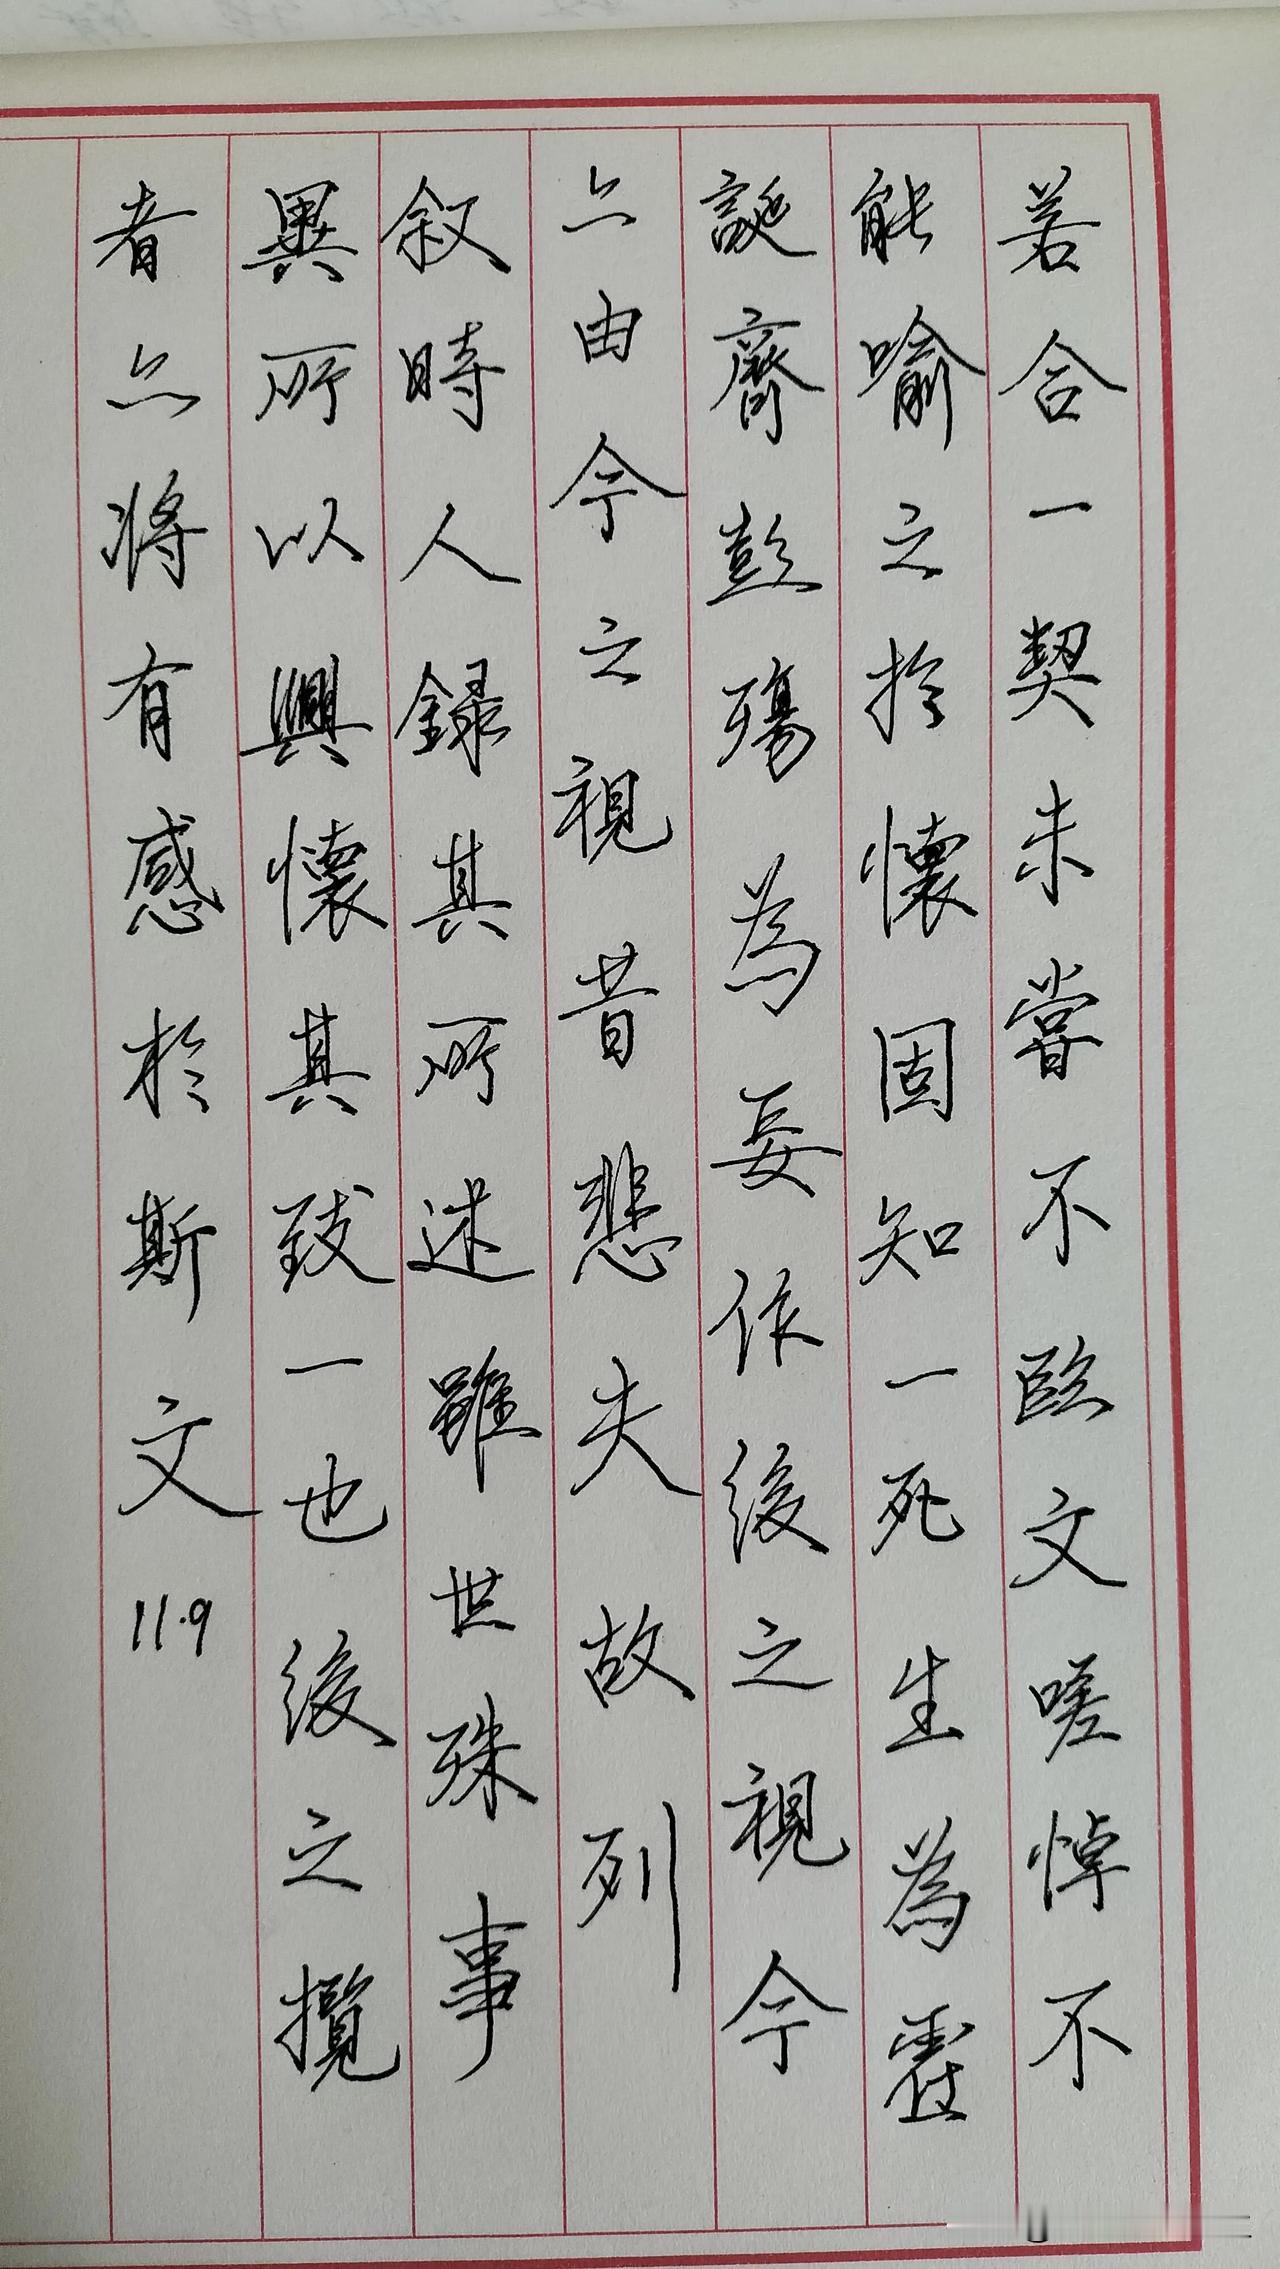 若合一契未嘗不臨文嗟悼不
能喻之於懷固知一死生為虛
誕齊彭殤為妄作後之視今
亦由今之視昔悲夫故列
叙時人録其所述雖世殊事
異所以興懷其致一也後之攬
者亦將有感於斯文
11.9